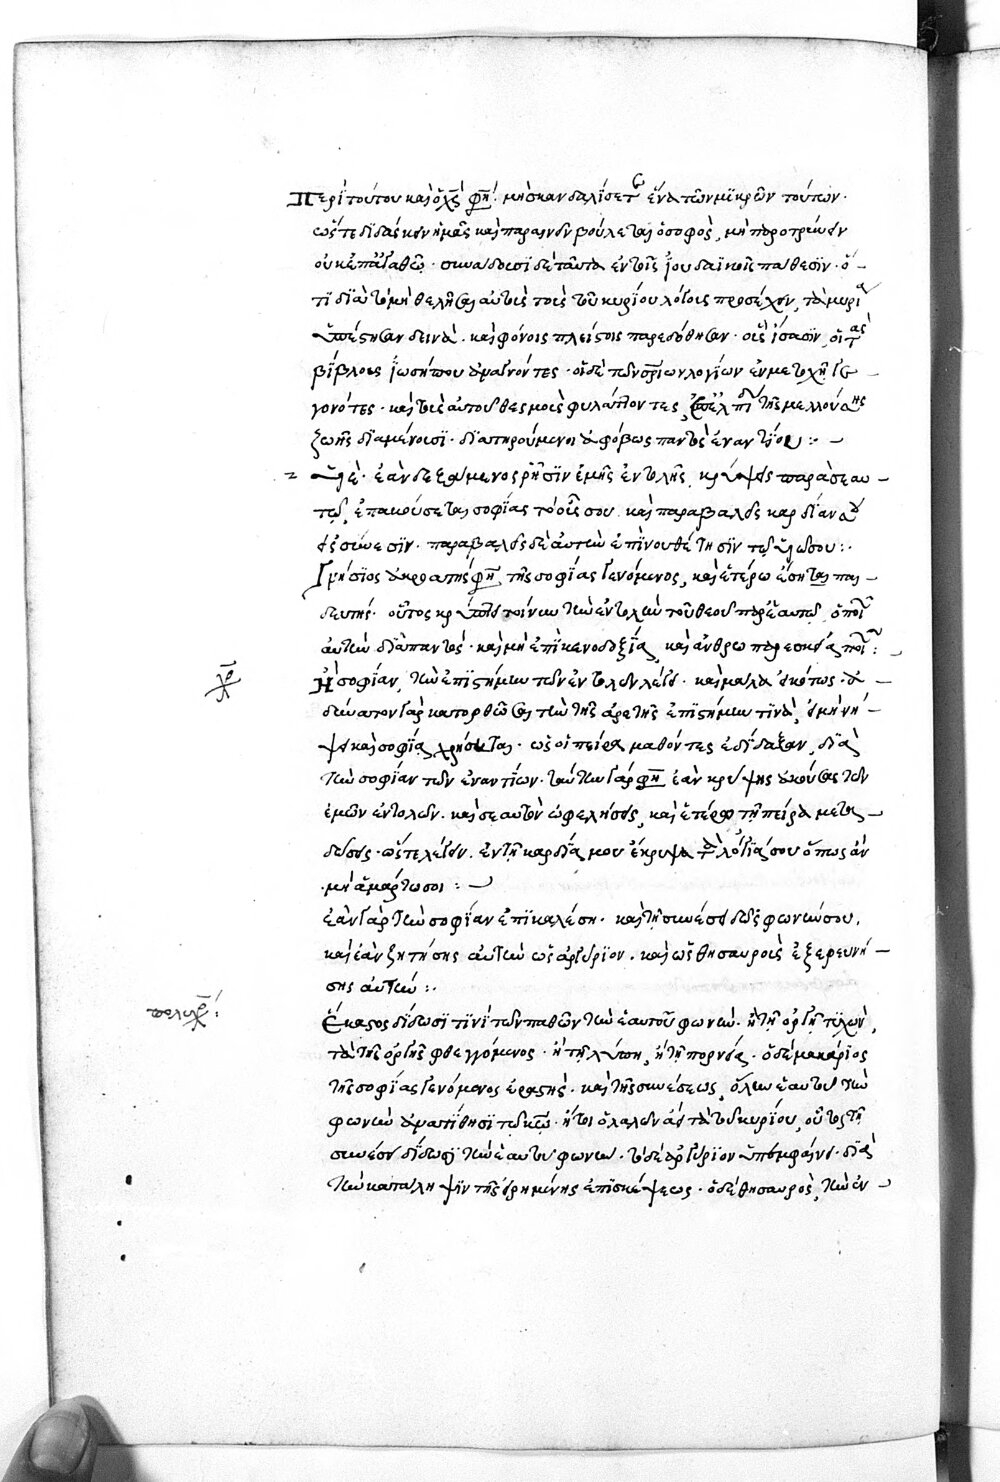 Περὶ τούτου καὶ ὁ χς φη· μὴ σκανδαλίσετε ἕνα τῶν μικρῶν τούτων·
ὥστε διδάσκειν ἡμᾶς καὶ παραινεῖν βούλεται ὁ σοφὸς, μὴ προτρέπειν
συνάδουσι δὲ ταῦτα ἐν τοῖς ἰουδαϊκοῖς πάθεσιν· ὅ-
τι διὰ τὸ μὴ θελῆσαι αὐτοὺς τοῖς τοῦ κυρίου λόγοις προσέχειν, τὰ μυρία
ὑπέστησαν δεινὰ. καὶ φόνοις πλείστοις παρεδόθησαν· οἷς ἴσασιν, οἱ τὰς
βίβλους ἰωσήπου ἀναγνόντες· οἱ δὲ τῶν θείων λογίων ἐν μετοχῇ γε-
γονότες· καὶ τοὺς αὐτοῦ θεσμοὺς φυλάττοντες, ἐπ' ἐλπίδι τῆς μελλούσης
ζωῆς διαμένουσι· διατηρούμενοι ἀφόβως παντὸς ἐναντίου :-
υἱὲ· ἐὰν δεξάμενος ῥῆσιν ἐμῆς ἐντολῆς, κρύψῃς παρὰ σεαυ-
τῷ, ἐπακούσεται σοφίας τὸ οὖς σου. καὶ παραβαλεῖς καρδίαν σου
εἰς σύνεσιν. παραβαλεῖς δὲ αὐτὴν ἐπὶ νουθέτησιν τῷ υἱῷ σου :.
Γνήσιος ἀκροατὴς φη τῆς σοφίας γενόμενος, καὶ ἑτέρω ἔσηται παι-
δευτής· οὗτος κρύπτει τοίνυν τὴν ἐντολὴν τοῦ θεοῦ παρ' ἑαυτῷ, ὁ ποιῶν
αὐτὴν διὰ παντὸς· καὶ μὴ ἐπὶ κενοδοξία, καὶ ἀνθρωπαρεσκεία ποιῶν :
χρ
Ἢ σοφίαν, τὴν ἐπιστήμην τῶν ἐντολῶν λέγει· καὶ μάλα εἰκότως· ἀ-
δύνατον γὰρ κατορθῶσαι τὴν τῆς ἀρετῆς ἐπιστήμην τινὰ, εἰ μὴ νή-
ψει καὶ σοφίᾳ χρήσεται· ὡς οἱ πείρᾳ μαθόντες ἐδίδαξαν, διὰ
τὴν σοφίαν τῶν ἐναντίων· τοῦτο γάρ φη ἐὰν κρύψῃς ἀκούσας τῶν
ἐμῶν ἐντολῶν. καὶ σεαυτὸν ὠφελήσεις, καὶ ἑτέρω τῇ πείρᾳ μετα-
δώσεις· ὥστε λέγειν. ἐν τῇ καρδίᾳ μου ἔκρυψα τὰ λόγιά σου ὅπως ἂν
μὴ ἁμάρτω σοι : -
ἐὰν γὰρ τὴν σοφίαν ἐπικαλέσῃ. καὶ τῇ συνέσει δῷς φωνήν σου,
καὶ ἐὰν ζητήσῃς αὐτὴν ὡς ἀργύριον. καὶ ὡς θησαυροὺς ἐξερευνή-
σῃς αὐτὴν :.
πολυχρ:
Ἕκαστος δίδωσί τινι τῶν παθῶν τὴν ἑαυτοῦ φωνήν· ἢ τῇ ὀργῇ τελῶν,
τὰ τῆς ὀργῆς φθεγγόμενος· ἢ τῇ λύπη, ἢ τῇ πορνεία. ὁ δὲ μακάριος
τῆς σοφίας γενόμενος ἐραστὴς. καὶ τῆς συνέσεως, ὅλην ἑαυτοῦ τὴν
φωνὴν ἀνατίθησι τῷ κω. ἤτοι ὁ λαλῶν ἀεὶ τὰ τοῦ κυρίου, οὗτος τῇ
συνέσει δίδωσι τὴν ἑαυτοῦ φωνήν. τὸ δὲ ἀργύριον ὑπεμφαίνει· διὰ
τὴν κατάληψιν τῆς εἰρημένης ἐπισκέψεως. ὁ δὲ θησαυρὸς, τὴν ἐν-